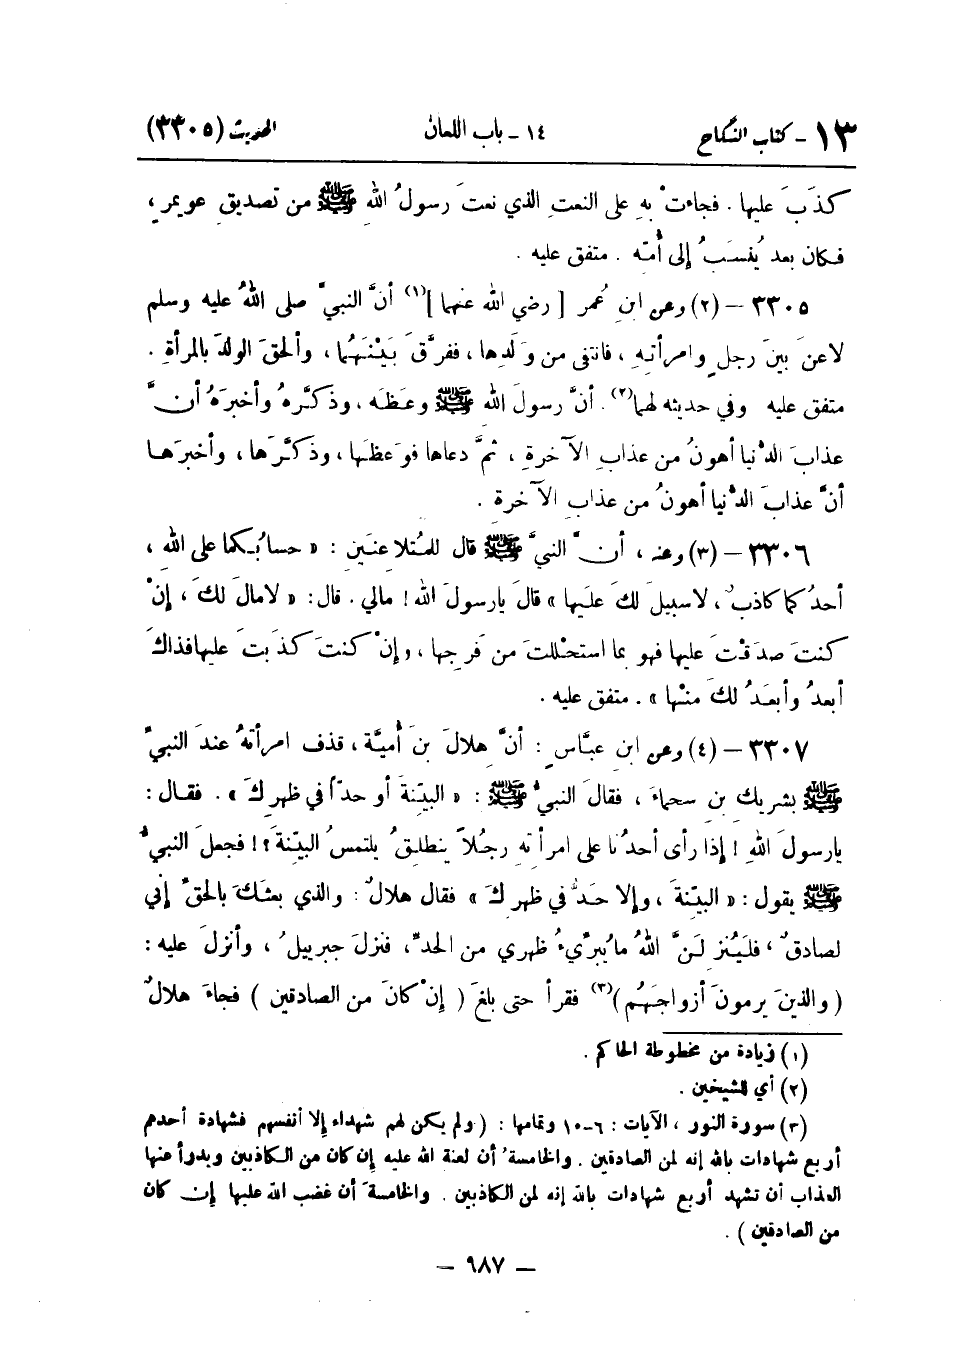 ١٣ - كتاب النكاح ١٤ - باب اللعان الحديث (٣٣٠٥)
كذَبَ عليها . فجاءتْ بهِ على النعتِ الذي نعتَ رسولُ اللهِ ﷺ من تصديقِ عويمرٍ ،
فكان بعد يُنسَبُ إلى أُمّه . متفق عليه .
٣٣٠٥ - (٢) وعن ابنِ عُمر [ رضي الله عنهما ](١) أنَّ النبيَّ صلى اللهُ عليه وسلم
لاعنَ بينَ رجلٍ وامرأتهِ ، فانتفى من وَلَدِها ، ففرَّقَ بَيْنَهُما ، وألحقَ الولدَ بالمرأةِ .
متفق عليه وفي حديثه لهما(٢) . أنَّ رسولَ الله ﷺ وعَظَه ، وذكَّرهُ وأخبرَهُ أنَّ
عذابَ الدُّنيا أهونُ من عذابِ الآخرةِ ، ثمَّ دعاها فوَعظَها ، وذكَّرَها ، وأخبرَها
أنَّ عذابَ الدُّنيا أهونُ من عذابِ الآخرةِ .
٣٣٠٦ - (٣) وعنه ، أنَّ النبيَّ ﷺ قال للمُتلاعِنَينِ : « حسابُكما على اللهِ ،
أحدُكما كاذبٌ ، لاسبيلَ لكَ علَيها » قالَ يارسولَ الله ! مالي . قال : « لامالَ لكَ ، إنْ
كنتَ صدَقْتَ عليها فهو بما استحْللتَ من فَرجِها ، وإنْ كنتَ كذَبتَ عليها فذاكَ
أبعدُ وأبعَدُ لكَ منْها » . متفق عليه .
٣٣٠٧ - (٤) وعن ابنِ عبَّاسٍ : أنَّ هلالَ بنَ أُميَّة ، قذف امرأتهُ عندَ النبيِّ
ﷺ بشريكِ بنِ سحماءَ ، فقالَ النبيُّ ﷺ : « البيّنةَ أو حدّاً في ظهرِكَ » . فقال :
يارسولَ اللهِ ! إذا رأى أحدُنا على امرأتهِ رجُلاً ينطلِقُ يلتمسُ البيّنةَ ؟! فجعلَ النبيُّ
ﷺ يقول : « البيّنةَ ، وإلا حَدٌّ في ظهرِكَ » فقال هلالٌ : والذي بعثَكَ بالحقِّ إني
لصادقٌ ، فلَيُنزِلَنَّ اللهُ ما يُبرِّيءُ ظهري من الحدِّ ، فنزلَ جبريلُ ، وأنزلَ عليه :
( والذينَ يرمونَ أزواجَهُم )(٣) فقرأ حتى بلغَ ( إنْ كانَ من الصادقين ) فجاءَ هلالٌ
(١) زيادة من مخطوطة الحاكم .
(٢) أي للشيخين .
(٣) سورة النور ، الآيات : ٦-١٠ وتمامها : ( ولم يكن لهم شهداء إلا أنفسهم فشهادة أحدهم
أربع شهادات بالله إنه لمن الصادقين . والخامسةُ أن لعنة الله عليه إن كان من الكاذبين ويدرأ عنها
العذاب أن تشهد أربع شهادات بالله إنه لمن الكاذبين . والخامسةَ أن غضب الله عليها إن كان
من الصادقين ) .
— ٩٨٧ —